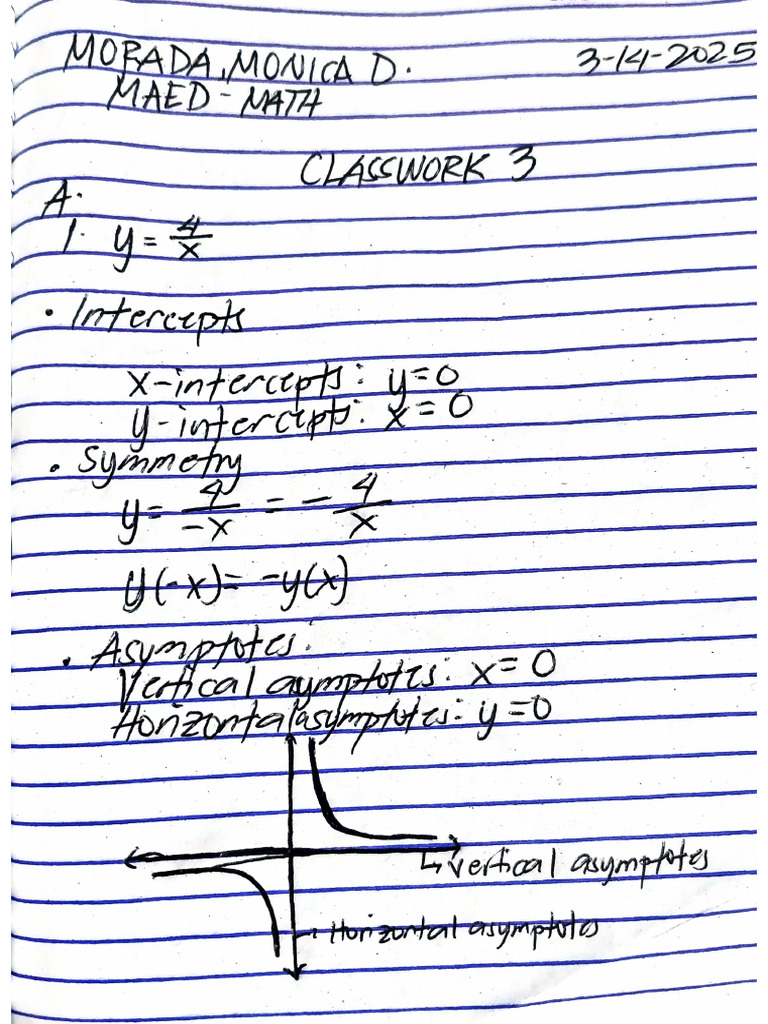 MORADA, MONICA D. 3-14-2025
MAED - MATH
CLASSWORK 3
A.
1. y = 4/x
• Intercepts
x-intercepts: y=0
y-intercepts: x=0
• Symmetry
y = 4/-x = - 4/x
y(-x) = -y(x)
• Asymptotes:
Vertical aymptotes: x=0
Horizontal asymptotes: y=0
↳ vertical asymptotes
→ Horizontal asymptotes